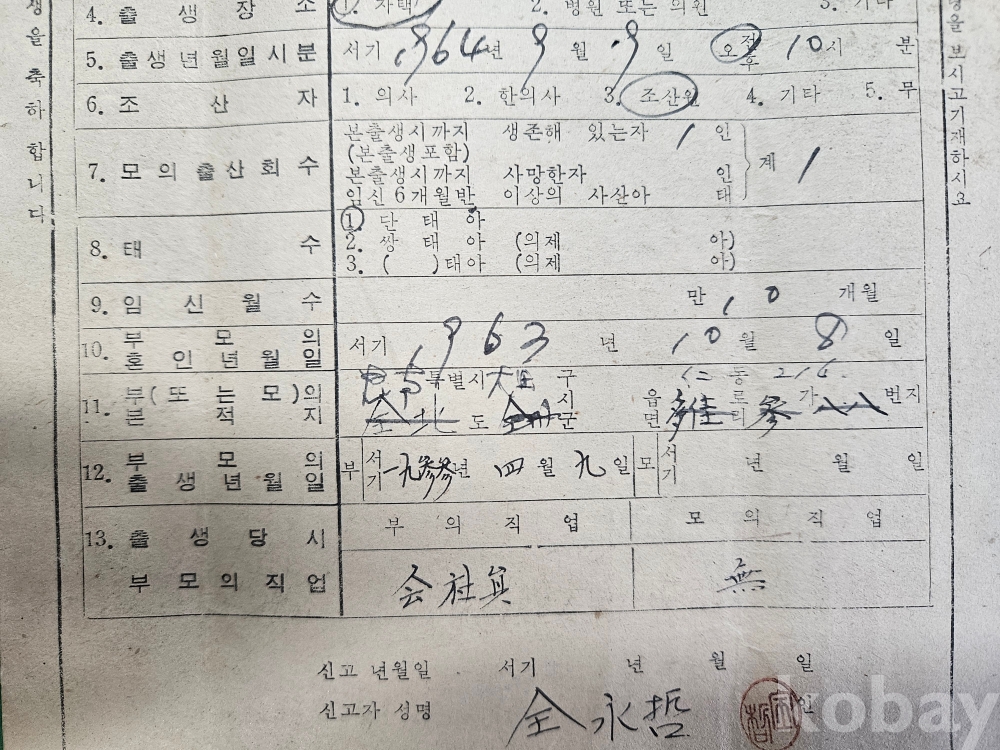 생을 축하합니다
4. 출생장소 1. 자택 2. 병원 또는 의원 3. 기타
5. 출생년월일시분 서기 1964년 9월 9일 오전후 10시 분
6. 조산자 1. 의사 2. 한의사 3. 조산원 4. 기타 5. 무
7. 모의출산회수
본출생시까지 생존해 있는자 1 인
(본출생포함)
본출생시까지 사망한자 인
임신6개월반 이상의 사산아 태
계 1
8. 태수
1. 단태아
2. 쌍태아 (의제 아)
3. ( )태아 (의제 아)
9. 임신월수 만 10 개월
10. 부모의 혼인년월일 서기 1963 년 10월 8일
11. 부(또는모)의 본적지
특별시 구 동
全北 도 시군 읍면 로리 가 번지
12. 부모의 출생년월일 부 서기 一九參參년 四월 九일 모 서기 년 월 일
13. 출생당시 부모의직업
부의직업 모의직업
会社員 無
신고 년월일 서기 년 월 일
신고자 성명 全永哲 인
보시고기재하시요
kobay